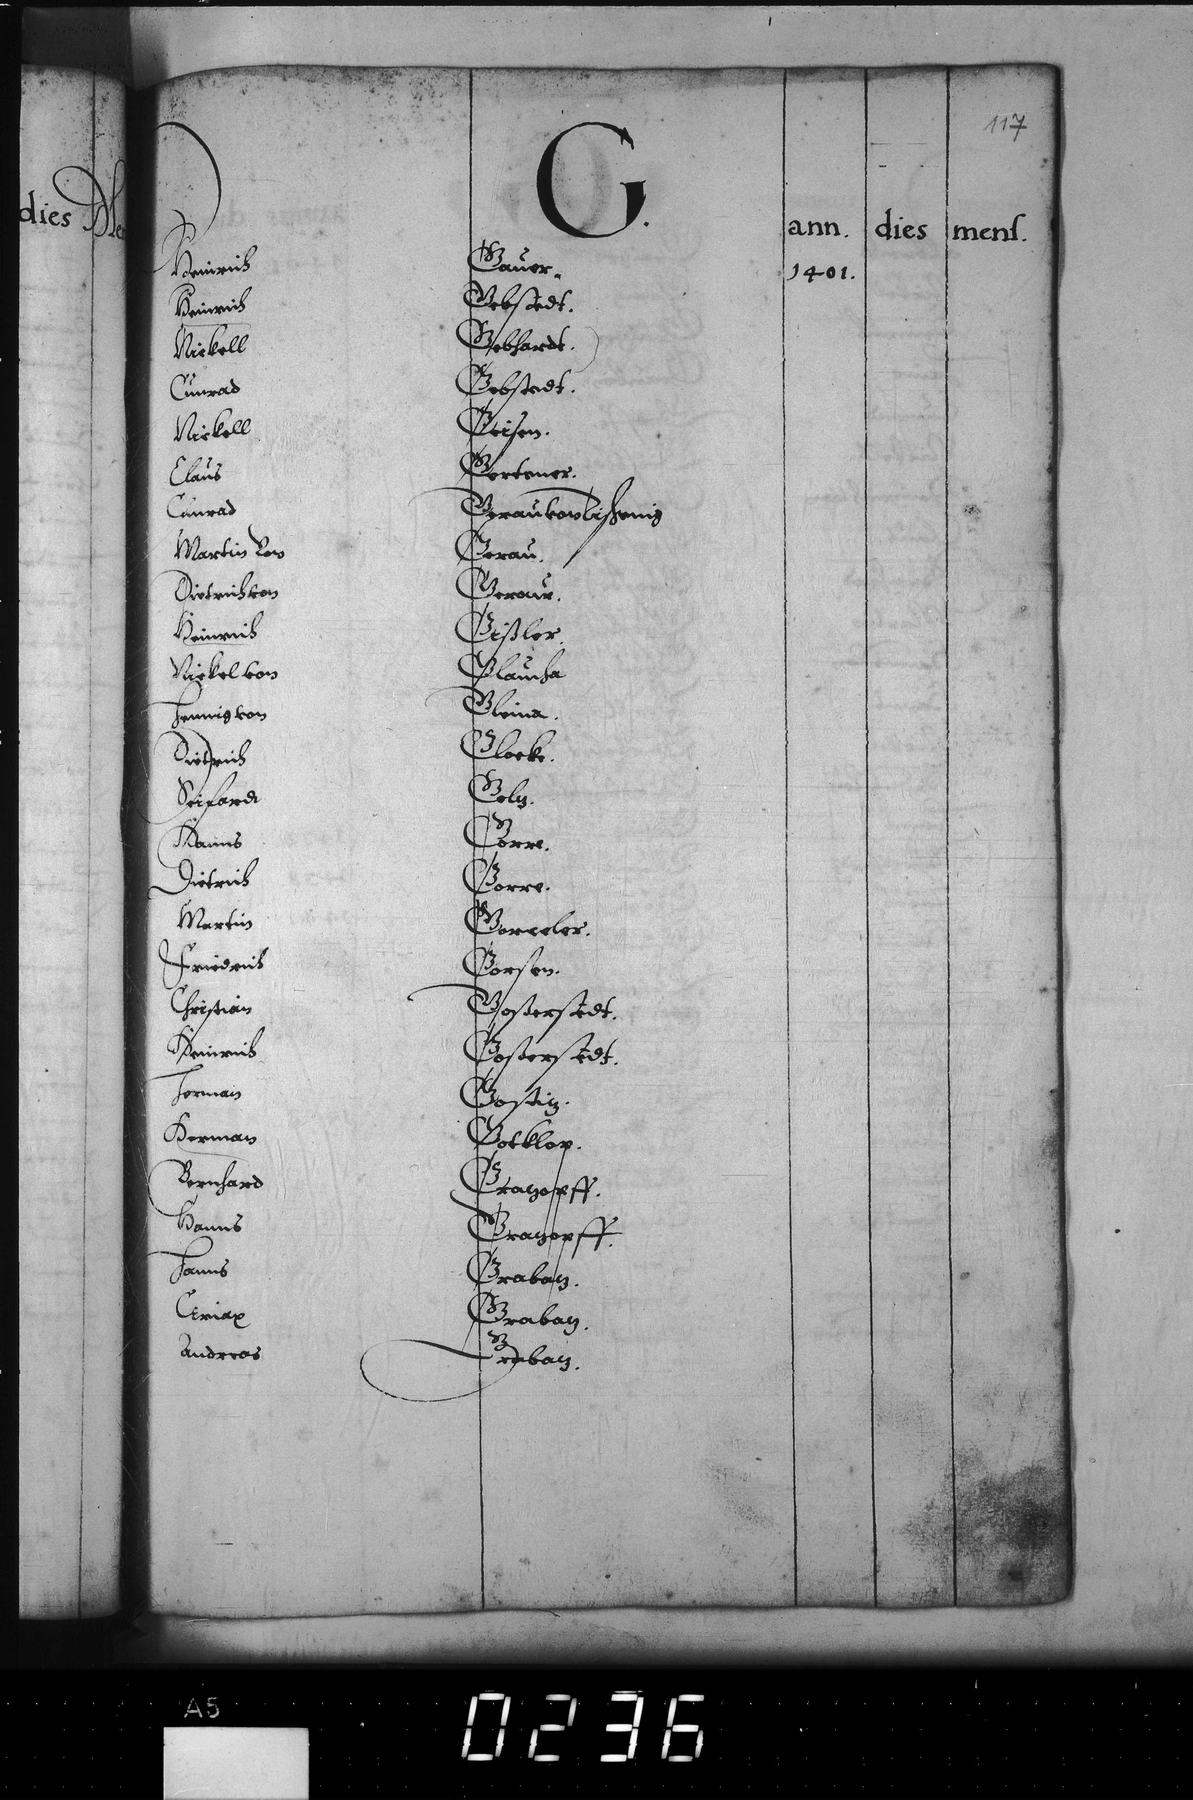 dies
117
G.
ann. dies mens.
Heinrich Gauer. 1401.
Heinrich Gebstedt.
Nickell Gebhardt.
Cunrad Gebstedt.
Nickell Geisen.
Claus Gertener.
Cunrad
Martin Von Gerau.
Dietrich von Gerauw.
Heinrich Gißler.
Nickel von Glaucha
Hennig von Gleina.
Dietrich Glocke.
Seifard Goltz.
Hanns Gorre.
Dietrich Gorre.
Martin Gorteler.
Friedrich Gorsen.
Christian Goßerstedt.
Heinrich Goßerstedt.
Herman Gostitz.
Herman Gotklop.
Bernhard Gratzopff.
Hanns Gratzopff.
Hanns Grabatz.
Ciriax Grabatz.
Andreas Grabatz.
A5
0236